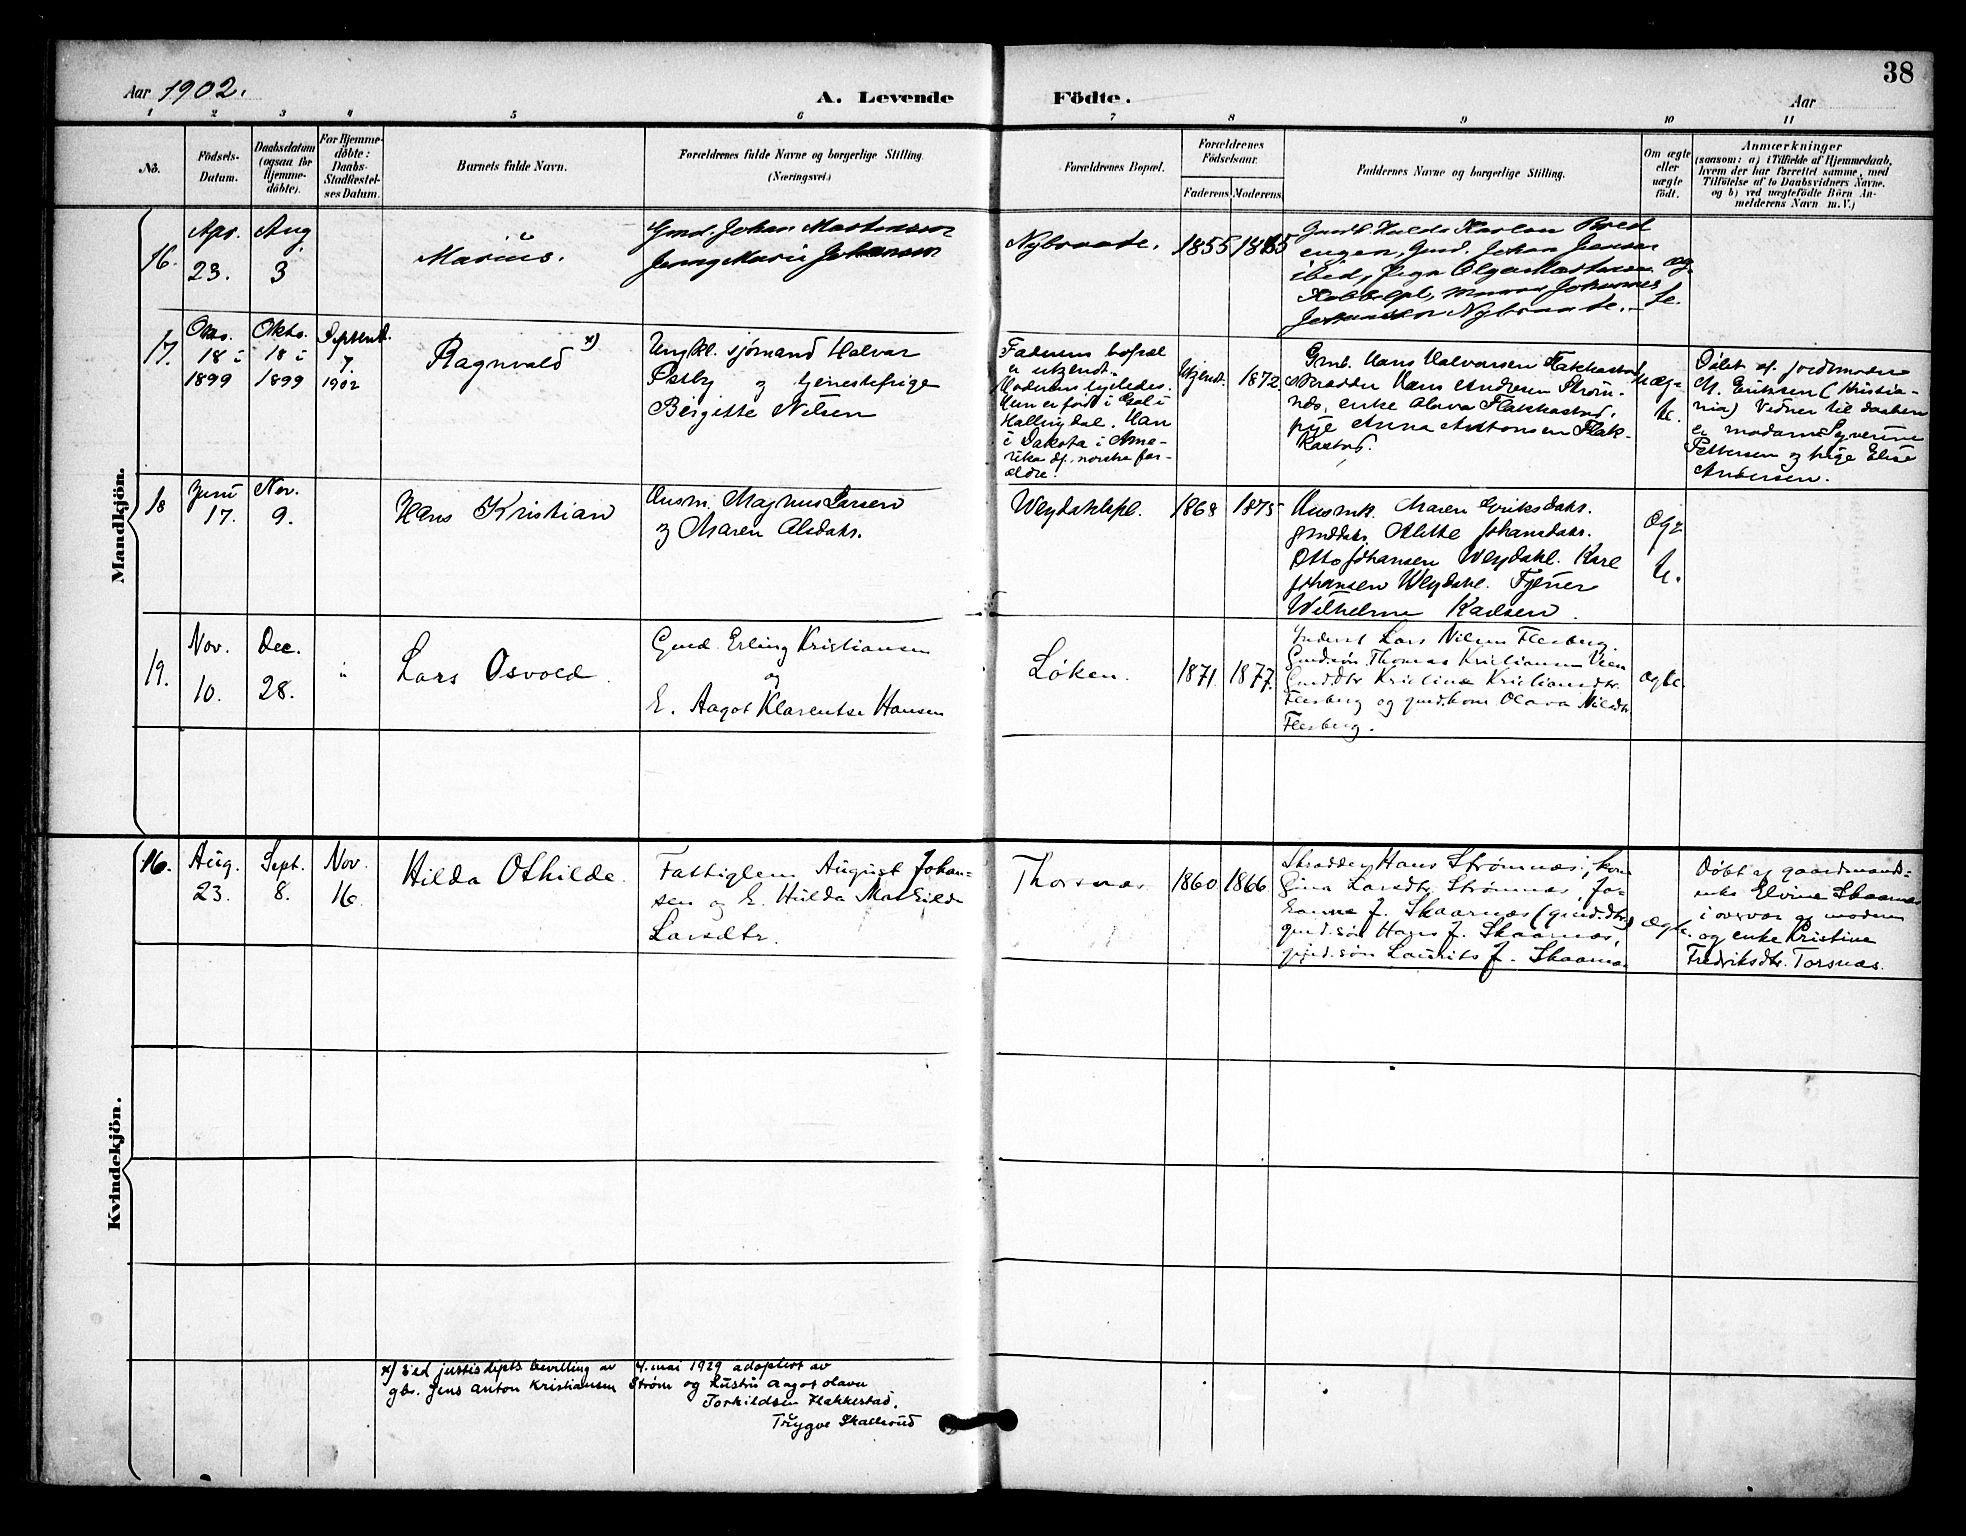 38
Aar 1902.
A. Levende Födte.
Aar
1 2 3 4 5 6 7 8 9 10 11
No.
Födsels-Datum.
Daabsdatum (ogsaa for Hjemme-döbte).
For Hjemme-döbte: Daabs-Stadfæstel-ses Datum.
Barnets fulde Navn.
Forældrenes fulde Navne og borgerlige Stilling.
(Næringsvei.)
Forældrenes Bopæl.
Forældrenes Födselsaar.
Faderens Moderens
Faddernes Navne og borgerlige Stilling.
Om ægte eller uægte födt.
Anmærkninger
(saasom: a) i Tilfælde af Hjemmedaab,
hvem der har forrettet samme, med
Tilföielse af to Daabsvidners Navne.
og b) ved uægtefödte Börn An-
melderens Navn m. V.)
Mandkjön.
16.
Apr.
23.
Aug
3
Marius.
Gmd. Johan Martinsen
Jenny Marie Johansen
Nybraate.
1855
1865
Johan Jensen
ibid, Olga
Nybraate.
Æg-
te.
17.
Okto.
18 i
1899
Okto.
18 i
1899
Septemb.
7.
1902
Ragnvald x)
Ungkl. sjømand Halvar
Østby og tjenestepige
Birgitte Nilsen
Faderens bopæl
er ukjendt.
Moderens ligeledes.
Hun er født i Gol i
Hallingdal. Han
i Dakota i Ame-
rika af norske for-
ældre.
Ukjendt.
1872
Gmb. Hans Halvorsen Flakkestad
skrædder Hans Andresen Strøm-
næs, enke Olava Flakkestad,
pige Anna Antonsen Flak-
kestad.
uæg-
te.
Døbt af jordmoder
M. Eriksen (Kristia-
nia) Vidner til daaben
er madam Syverine
Pettersen og pige Elise
Andersen.
18
Juni
17.
Nov.
9.
Hans Kristian
Husm. Magnus Larsen
og Maren Olsdatr.
Weydahlspl.
1868
1875
Husmk. Maren Eriksdatr.
gmddatr. Mathe Johansdatr.
Otto Johansen Weydahl. Karl
Johansen Weydahl. Tjener
Wilhelmine Karlsen.
Æg-
te.
19.
Nov.
10.
Dec.
28.
"
Lars Osvald.
Gmd. Erling Kristiansen
og
E. Aagot Klarentse Hansen
Løken.
1871.
1877.
Lars Nilsen Flesberg.
Gmd.søn Thomas Kristiansen Veen
Gmd.dtr Kristine Kristiansdtr.
Flesberg og gmd.kone Olava Nilsdtr
Flesberg.
ægte.
Kvindekjön.
16.
Aug.
23.
Sept.
8.
Nov.
16.
Hilda Othilde.
Fattiglem August Johan-
sen og E. Hulda Mathilde
Larsdtr.
Thorsnæs.
1860.
1866.
Skrædder Hans Strømnæs, kone
Gina Larsdtr. Strømnæs, Jo-
hanne J. Skaarnæs (gmd.dtr.)
gmd.søn Hans J. Skaarnæs,
gmd.søn Laurits J. Skaarnæs
Ægte.
Døbt af gaardmands-
enke Elvine Skaarnæs
i overvær af moderen
og enke Kristine
Fredriksdtr. Torsnæs.
x) Ved justisdepts bevilling av 4. mai 1929 adoptert av
gbr. Jens Anton Kristiansen Strøm og hustru Aagot Olava
Torkildsen Flakkestad.
Trygve Skallerud